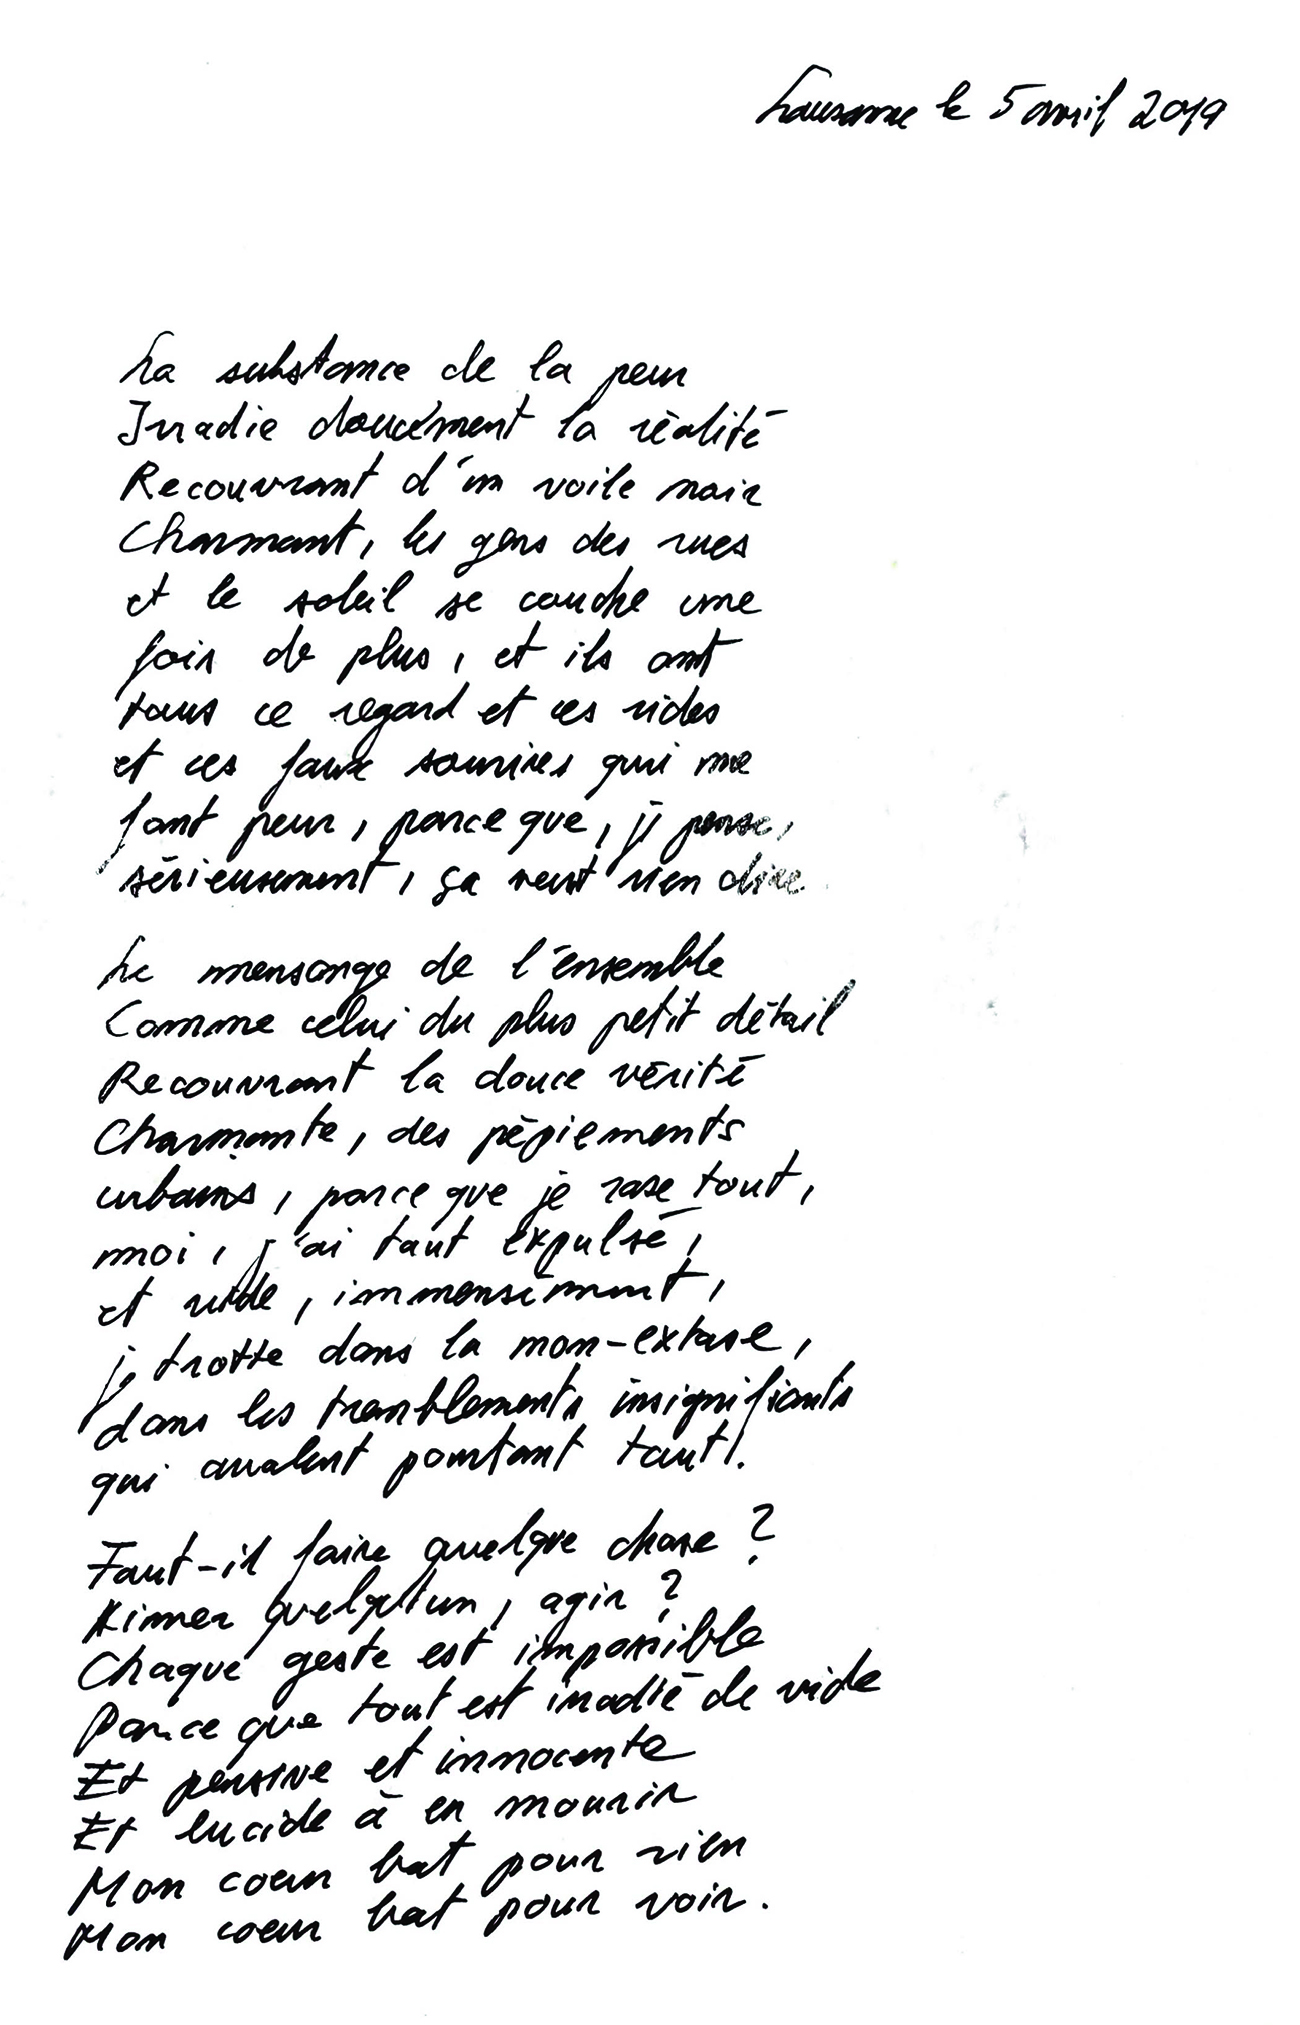 Lausanne le 5 avril 2019
La substance de la peur
Irradie doucement la réalité
Recouvrant d'un voile noir
Charmant, les gens des rues
et le soleil se couche une
fois de plus, et ils ont
tous ce regard et ces rides
et ces faux sourires qui me
font peur, parce que, je pense,
sérieusement, ça veut rien dire
Le mensonge de l'ensemble
Comme celui du plus petit détail
Recouvrant la douce vérité
Charmante, des pépiements
urbains, parce que je rase tout,
moi, j'ai tout expulsé,
et vide, immensément,
je trotte dans la non-extase,
dans les tremblements insignifiants
qui avalent pourtant tout!.
Faut-il faire quelque chose ?
Aimer quelqu'un, agir ?
Chaque geste est impossible
Parce que tout est irradié de vide
Et pensive et innocente
Et lucide à en mourir
Mon coeur bat pour rien
Mon coeur bat pour voir.